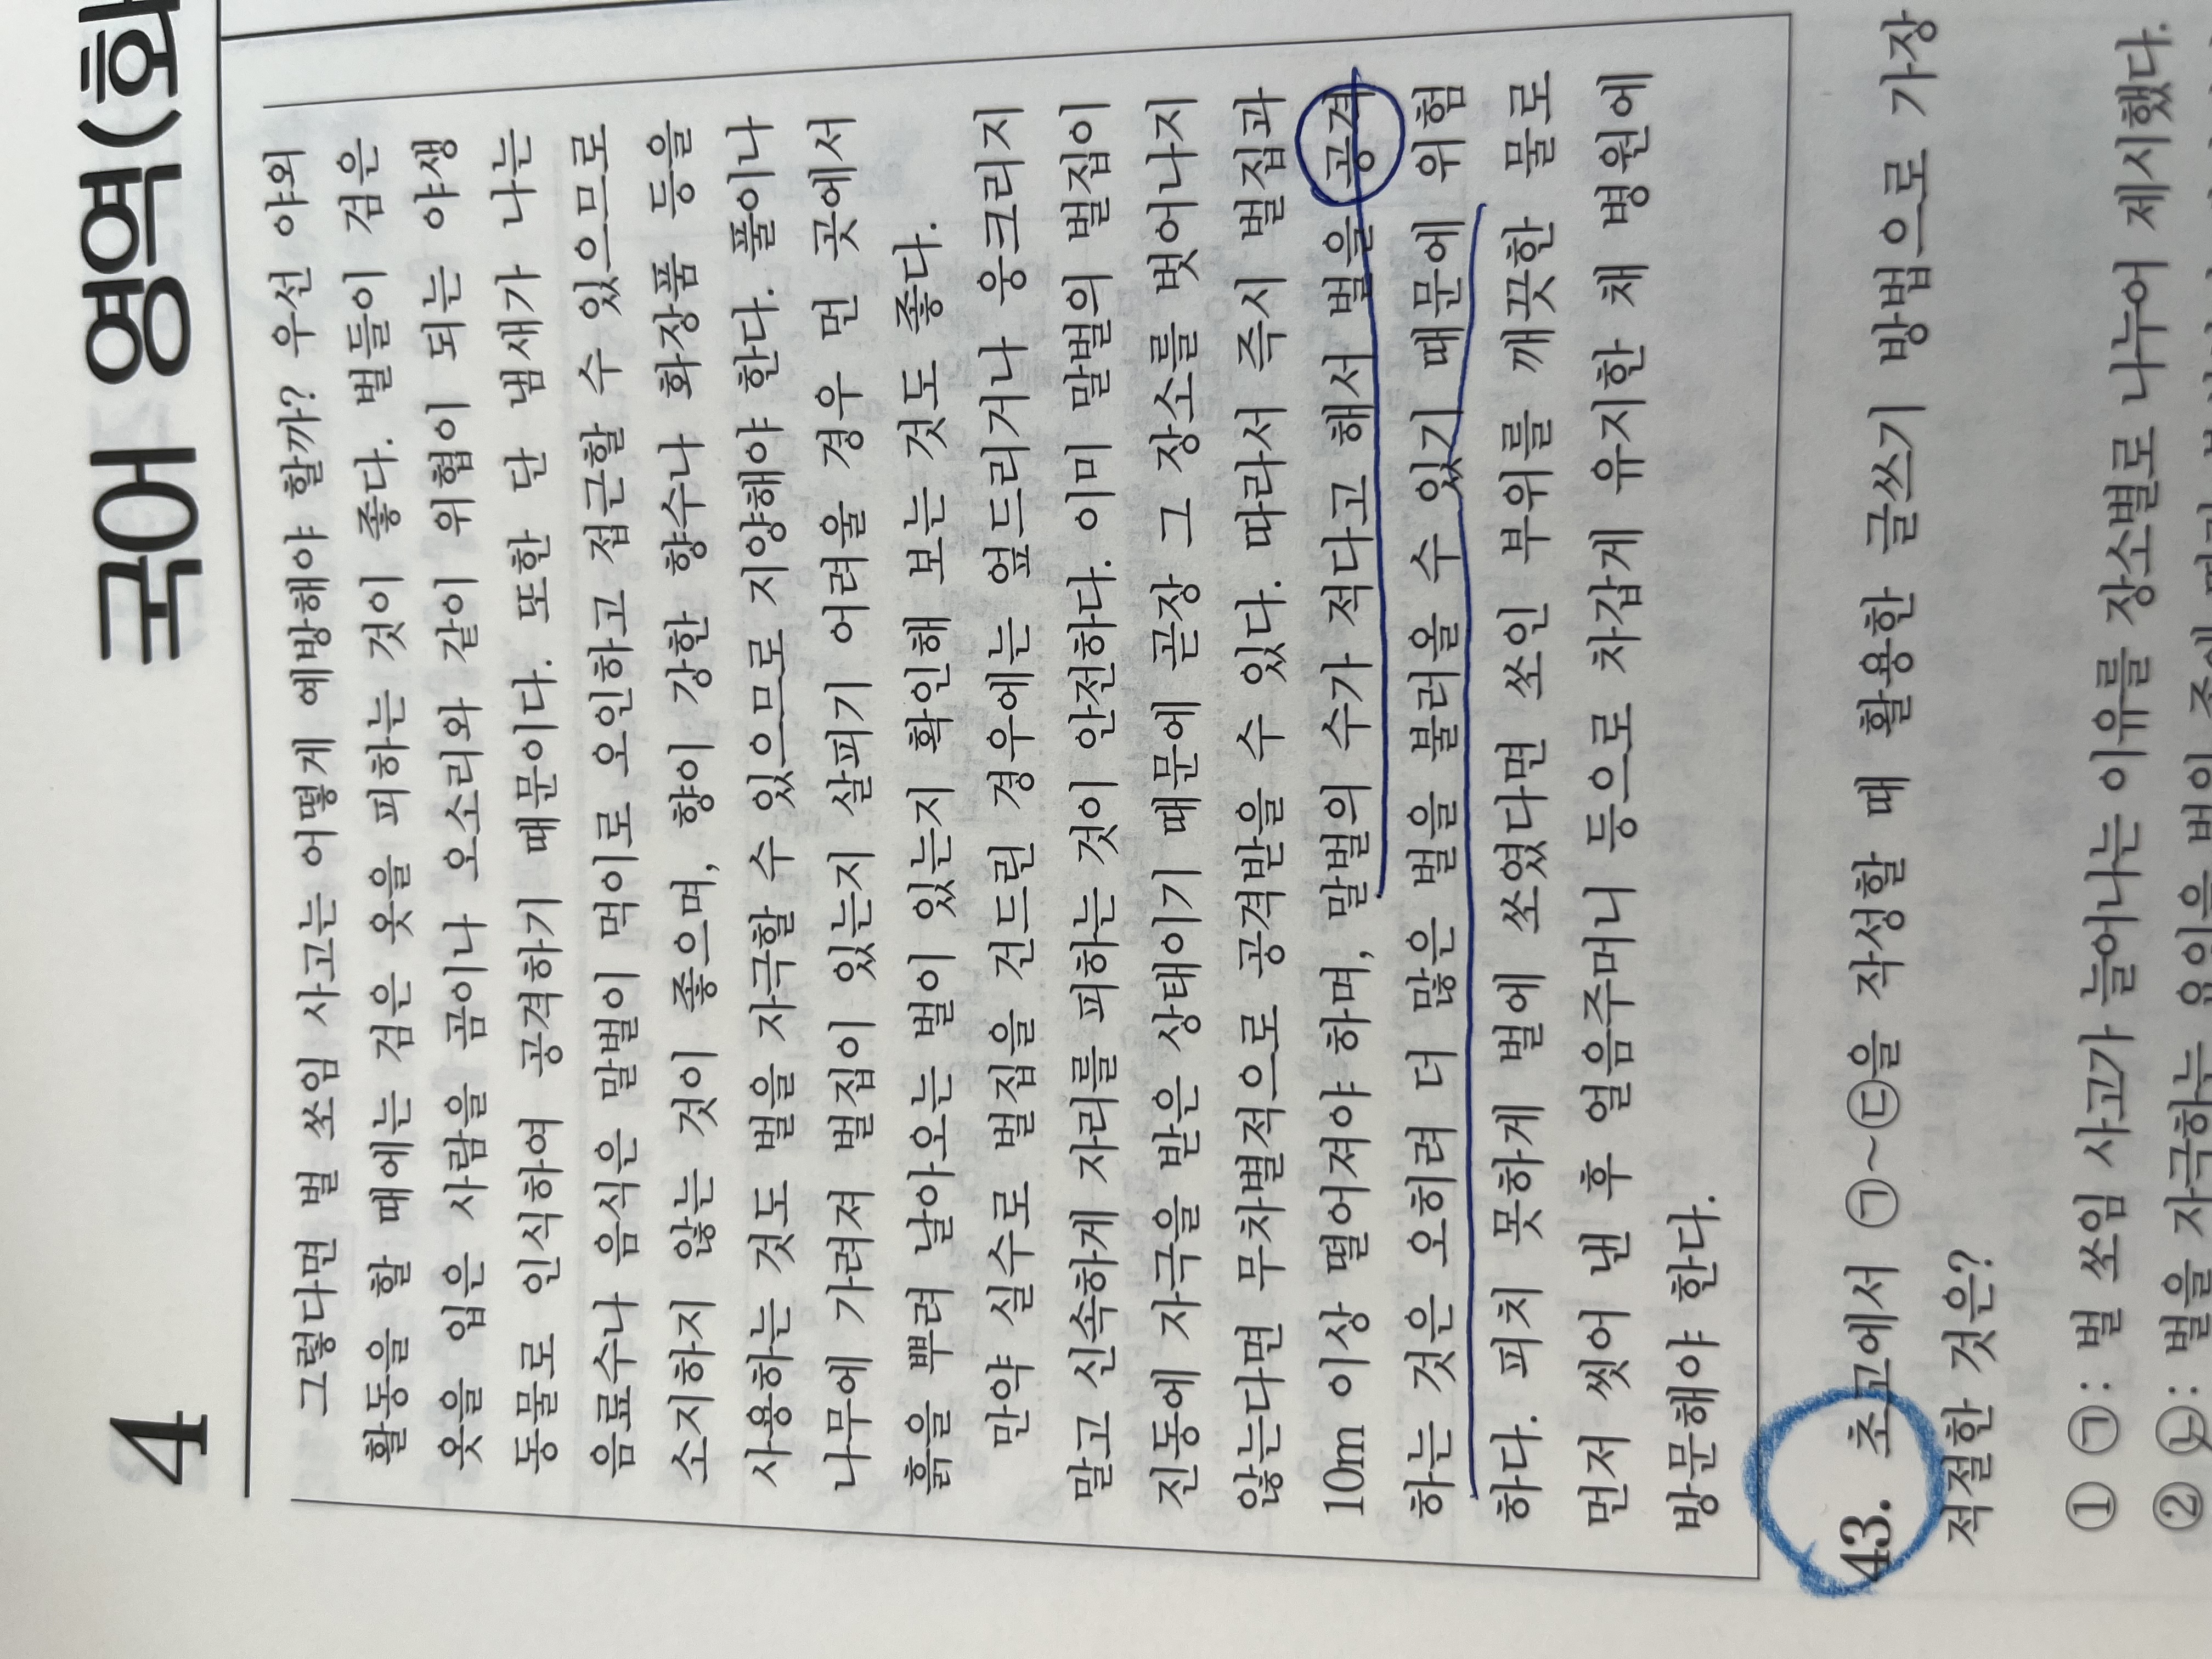 4
국어 영역(화
그렇다면 벌 쏘임 사고는 어떻게 예방해야 할까? 우선 야외
활동을 할 때에는 검은 옷을 피하는 것이 좋다. 벌들이 검은
옷을 입은 사람을 곰이나 오소리와 같이 위협이 되는 야생
동물로 인식하여 공격하기 때문이다. 또한 단 냄새가 나는
음료수나 음식은 말벌이 먹이로 오인하고 접근할 수 있으므로
소지하지 않는 것이 좋으며, 향이 강한 향수나 화장품 등을
사용하는 것도 벌을 자극할 수 있으므로 지양해야 한다. 풀이나
나무에 가려져 벌집이 있는지 살피기 어려울 경우 먼 곳에서
흙을 뿌려 날아오는 벌이 있는지 확인해 보는 것도 좋다.
만약 실수로 벌집을 건드린 경우에는 엎드리거나 웅크리지
말고 신속하게 자리를 피하는 것이 안전하다. 이미 말벌의 벌집이
진동에 자극을 받은 상태이기 때문에 곧장 그 장소를 벗어나지
않는다면 무차별적으로 공격받을 수 있다. 따라서 즉시 벌집과
10m 이상 떨어져야 하며, 말벌의 수가 적다고 해서 벌을 공격
하는 것은 오히려 더 많은 벌을 불러올 수 있기 때문에 위험
하다. 피치 못하게 벌에 쏘였다면 쏘인 부위를 깨끗한 물로
먼저 씻어 낸 후 얼음주머니 등으로 차갑게 유지한 채 병원에
방문해야 한다.
43. 초고에서 ㉠~㉢을 작성할 때 활용한 글쓰기 방법으로 가장
적절한 것은?
① ㉠: 벌 쏘임 사고가 늘어나는 이유를 장소별로 나누어 제시했다.
② ㉡: 벌을 자극하는 요인을 벌의